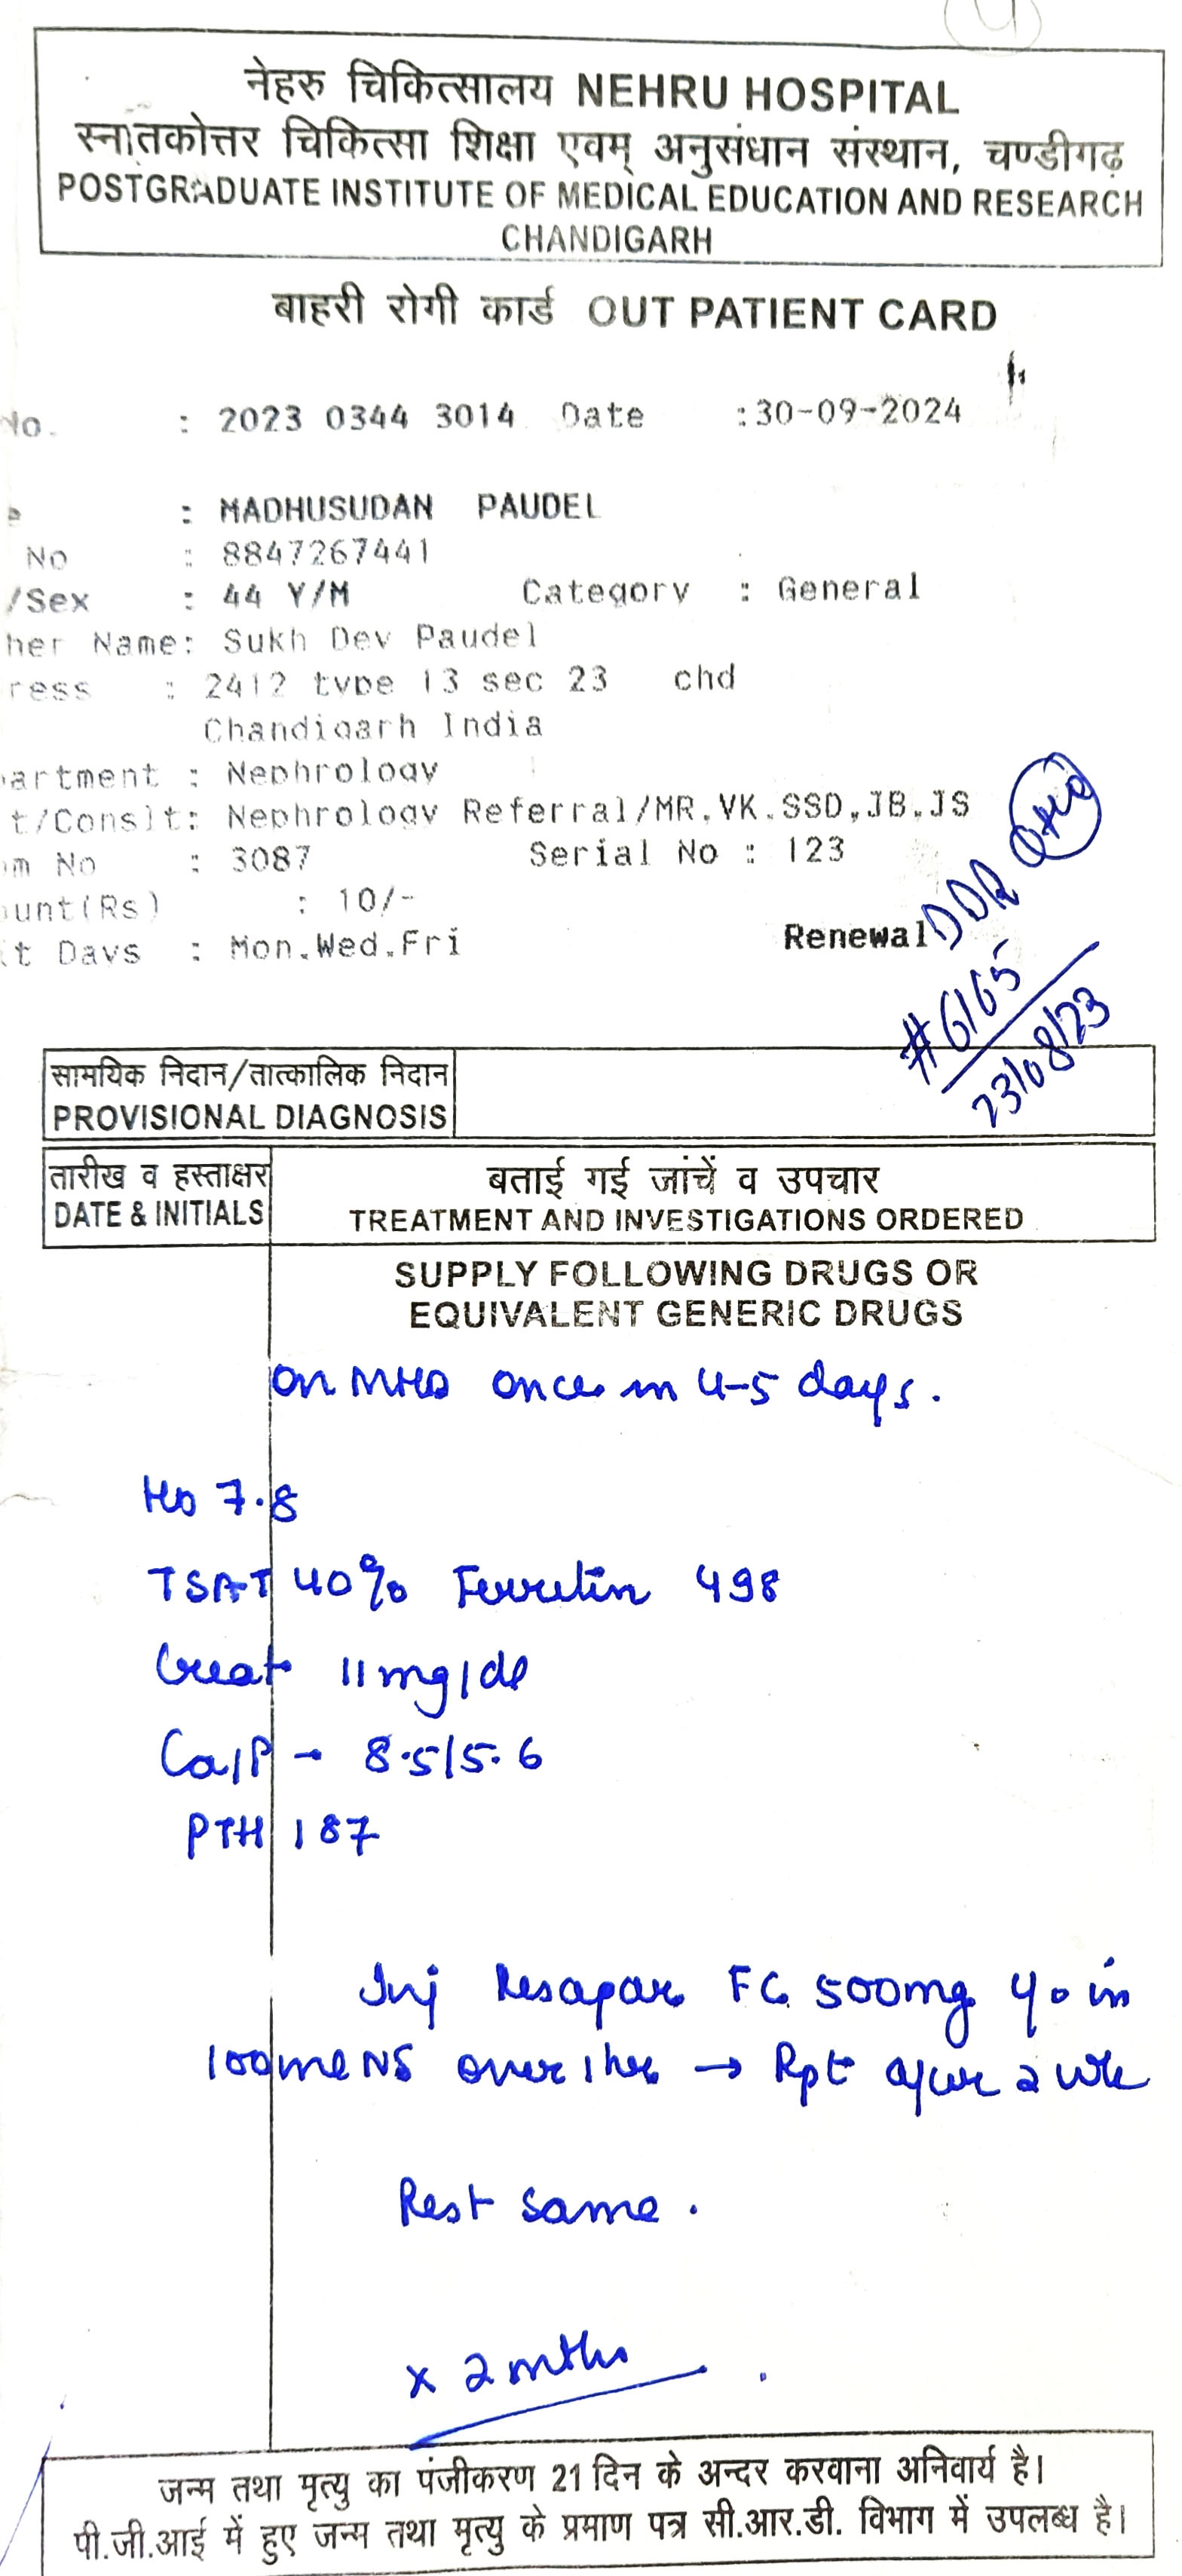 नेहरु चिकित्सालय NEHRU HOSPITAL
स्नातकोत्तर चिकित्सा शिक्षा एवम् अनुसंधान संस्थान, चण्डीगढ़
POSTGRADUATE INSTITUTE OF MEDICAL EDUCATION AND RESEARCH
CHANDIGARH
बाहरी रोगी कार्ड OUT PATIENT CARD
No. : 2023 0344 3014 Date :30-09-2024
: MADHUSUDAN PAUDEL
No : 8847267441
/Sex : 44 Y/M Category : General
her Name: Sukh Dev Paudel
ress : 2412 type 13 sec 23 chd
Chandigarh India
artment : Nephrology
t/Conslt: Nephrology Referral/MR.VK.SSD,JB,JS
m No : 3087 Serial No : 123
unt(Rs) : 10/-
t Days : Mon.Wed.Fri
Renewal
DDR
#6165
23/08/23
सामयिक निदान/तात्कालिक निदान
PROVISIONAL DIAGNOSIS
तारीख व हस्ताक्षर बताई गई जांचें व उपचार
DATE & INITIALS TREATMENT AND INVESTIGATIONS ORDERED
SUPPLY FOLLOWING DRUGS OR
EQUIVALENT GENERIC DRUGS
On MHD once in 4-5 days.
Hb 7.8
TSAT 40% Ferretin 498
Creat 11mg/dl
Ca/P - 8.5/5.6
PTH 187
Inj FC 500mg in
100ml NS over 1hr → Rpt after 2 wk
Rest same.
x 2 mths
जन्म तथा मृत्यु का पंजीकरण 21 दिन के अन्दर करवाना अनिवार्य है।
पी.जी.आई में हुए जन्म तथा मृत्यु के प्रमाण पत्र सी.आर.डी. विभाग में उपलब्ध है।